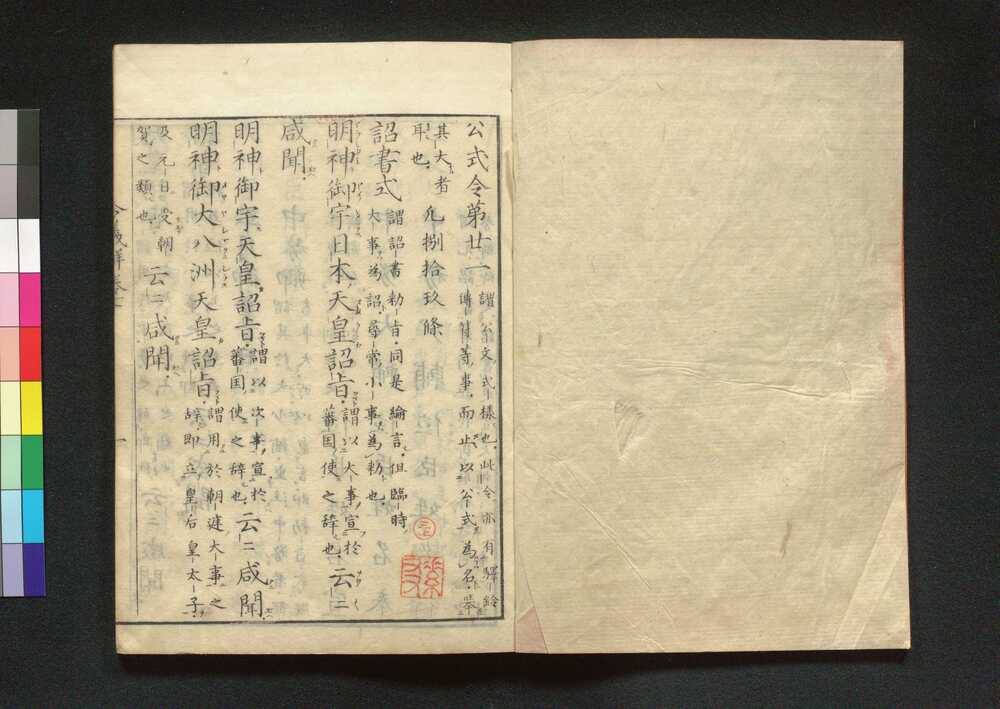 公式令第廿一 謂公文式様也此令亦有驛鈴
傳符等事而止以公式為名挙
其大者
耳也 凡捌拾玖條
詔書式 謂詔書勅旨同是綸言但臨時
大事為詔尋常小事為勅也
明神御宇日本天皇詔旨 謂以大事宣於
蕃国使之辞也 云〻
咸聞
明神御宇天皇詔旨 謂以次事宣於
蕃国使之辞也 云〻咸聞
明神御大八洲天皇詔旨 謂用於朝廷大事之
辞即立皇后皇太子
及元日受朝
賀之類也 云〻咸聞